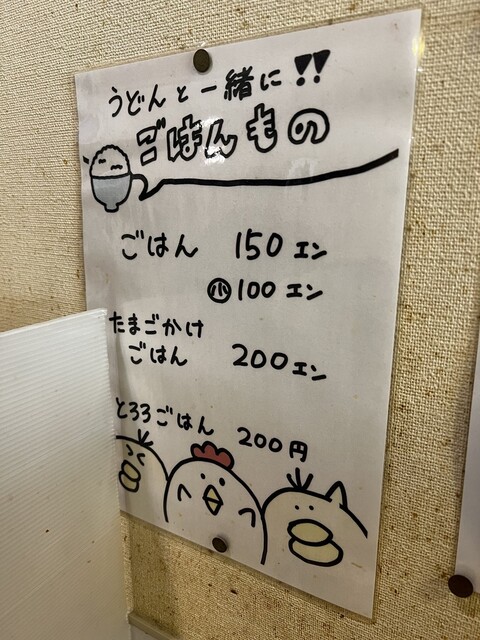 うどんと一緒に!!
ごはんもの
ごはん 150エン
小 100エン
たまごかけ
ごはん 200エン
とろろごはん 200円